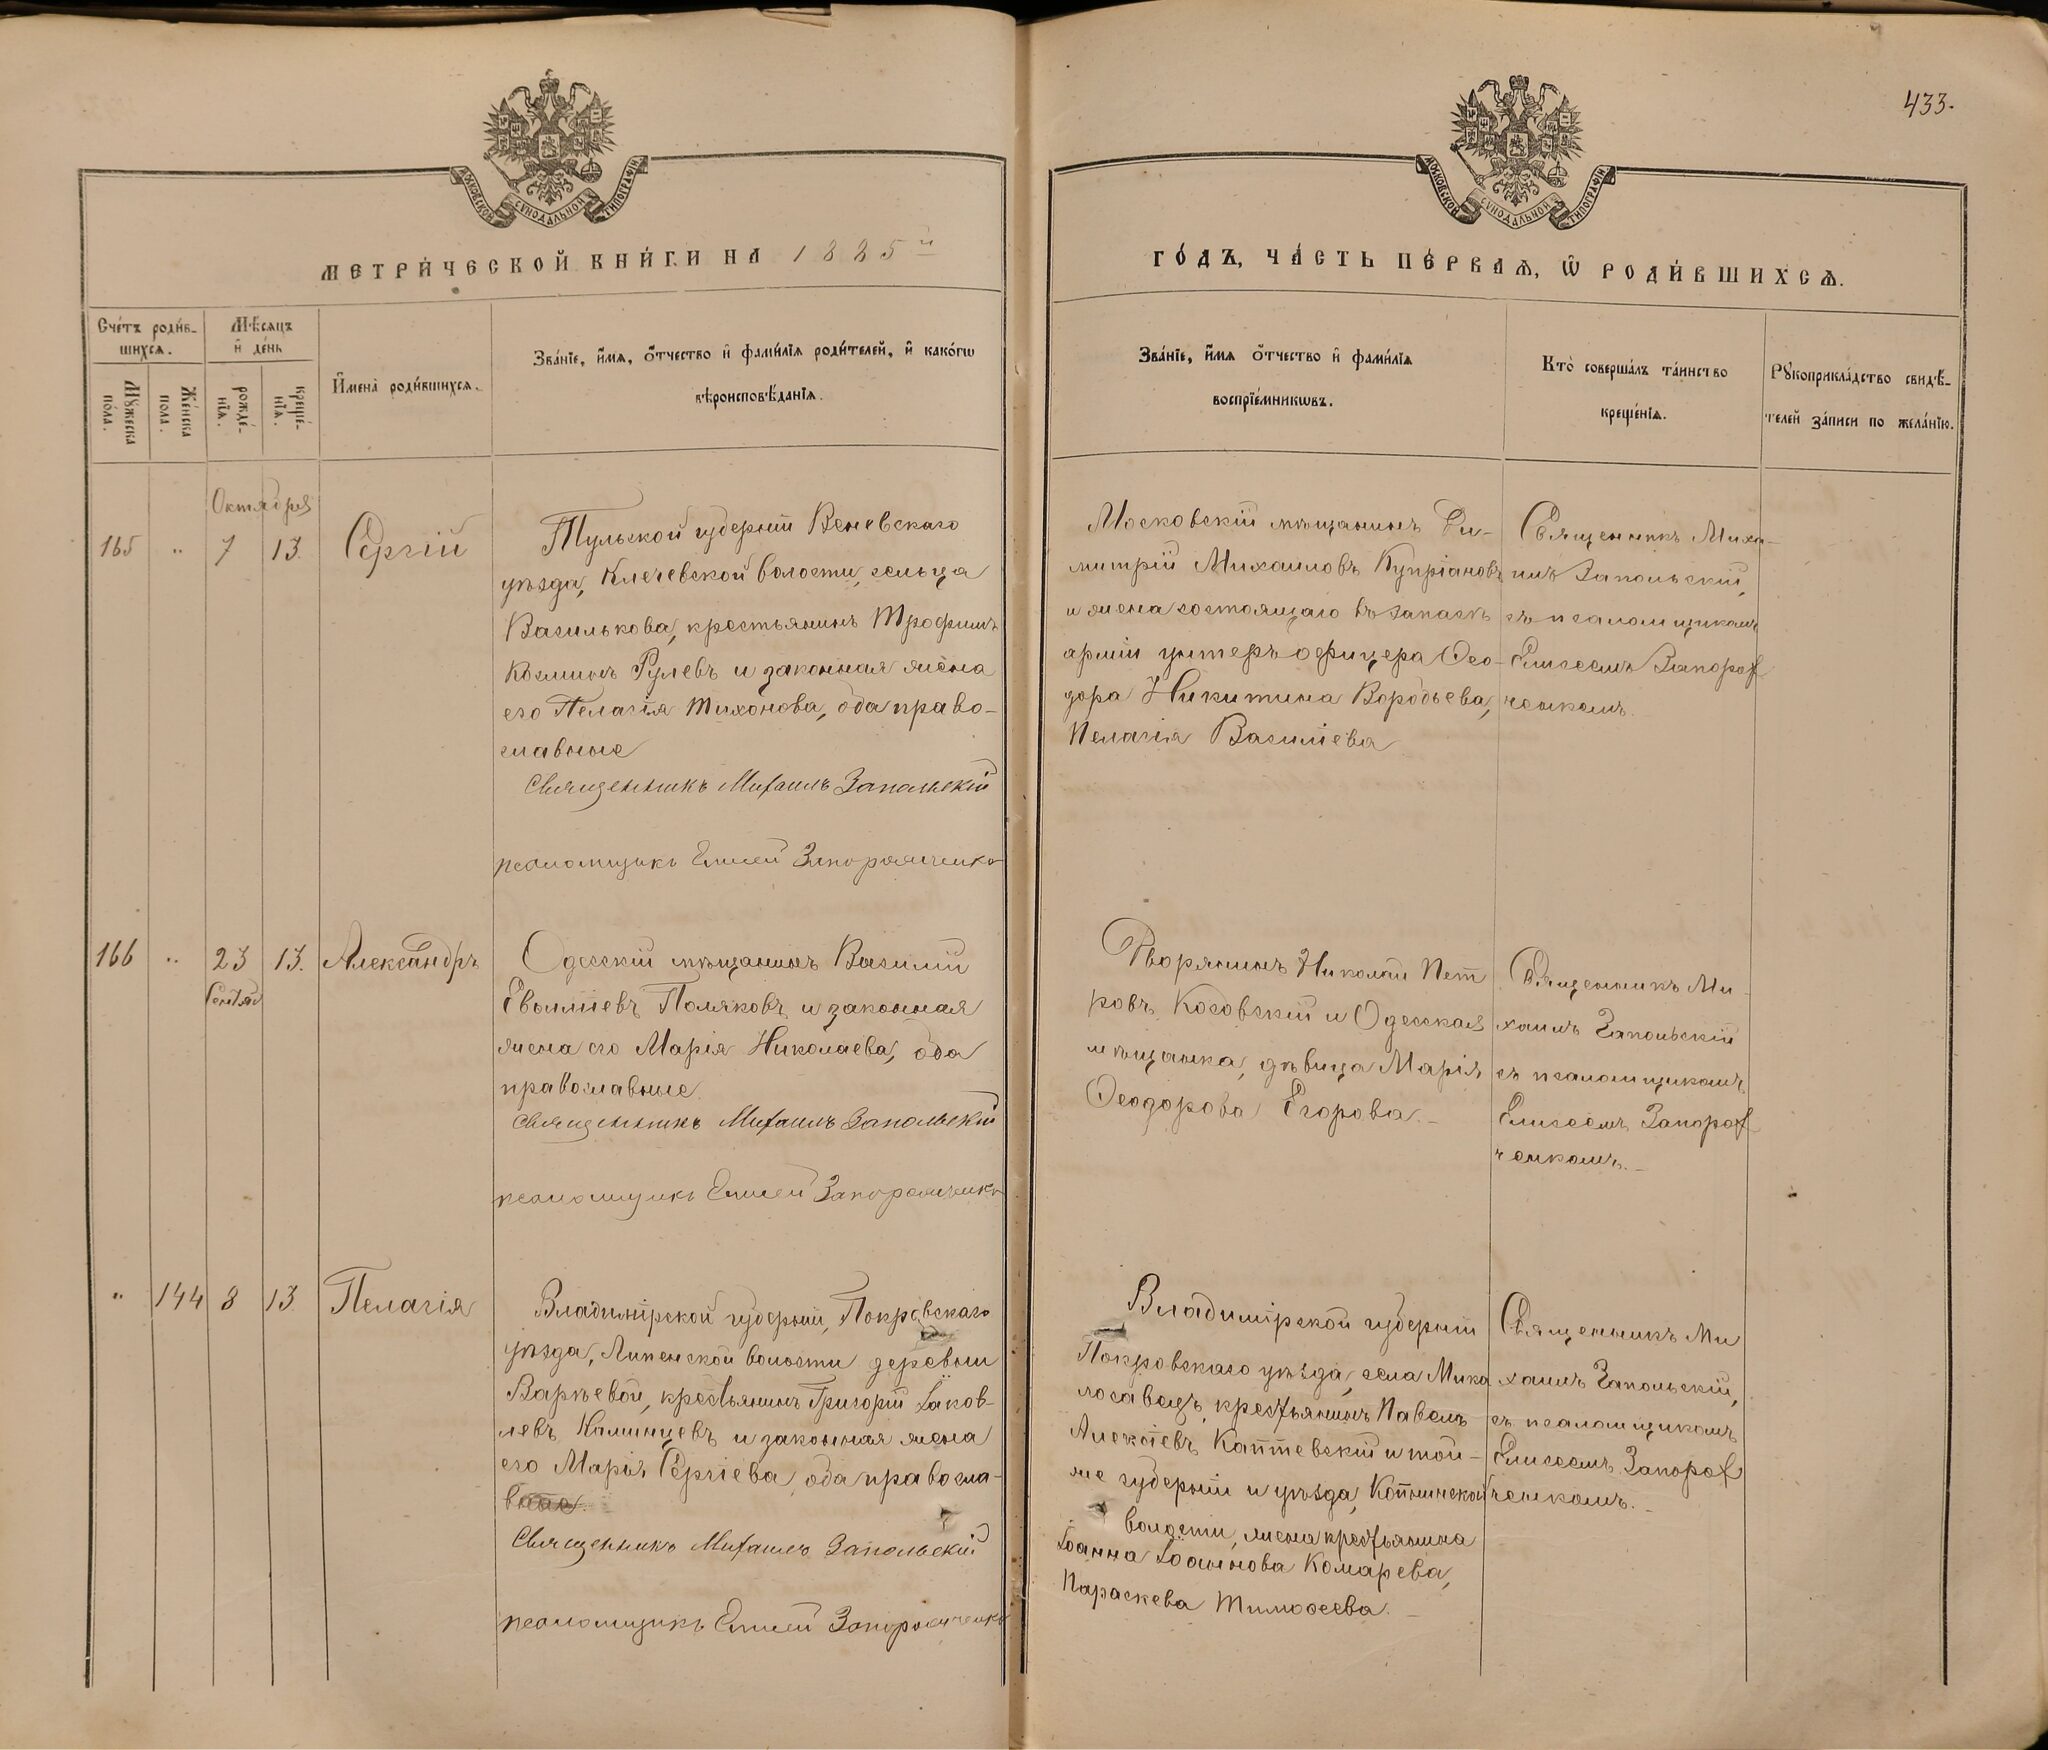 433.
МОСКОВСКОЙ СѴНОДАЛЬНОЙ ТИПОГРАФІИ
МОСКОВСКОЙ СѴНОДАЛЬНОЙ ТИПОГРАФІИ
МЕТРИ́ЧЕСКОЙ КНИ́ГИ НА 1885й
ГО́ДЪ, ЧА́СТЬ ПЕ́РВАѦ, Ѡ РОДИ́ВШИХСѦ.
Сче́тъ роди́в-
шихсѧ.
Мѣ́сѧцъ
и҆ де́нь
Мꙋ́жеска
по́ла.
Же́нска
пола.
рожде́-
нїѧ.
креще́-
нїѧ.
И҆мена̀ роди́вшихсѧ.
Зва́нїе, и҆́мѧ, ѻ҆́тчество и҆ фами́лїѧ роди́телей, и҆ како́гѡ
вѣроисповѣ́данїѧ.
Зва́нїе, и҆́мѧ ѻ҆́тчество и҆ фами́лїѧ
воспрїе́мникѡвъ.
Кто̀ соверша́лъ та́инство
креще́нїѧ.
Рꙋкоприкла́дство свидѣ́-
телей за́писи по жела́нїю.
Октября
165 " 7 13. Сергій
Тульской губерніи Веневскаго
уѣзда, Ключевской волости, сельца
Василькова, крестьянинъ Трофимъ
Козминъ Рулевъ и законная жена
его Пелагія Тихонова, оба право-
славные
Священникъ Михаилъ Запольскій
псаломщикъ Елисей Запорожченко
Московскій мѣщанинъ Ди-
митрій Михаиловъ Купріановъ
и жена состоящаго въ запасѣ
арміи унтеръ офицера Ѳео-
дора Никитина Воробьева,
Пелагія Василіева
Священникъ Миха-
илъ Запольскій,
съ псаломщикомъ
Елисеемъ Запорож
ченкомъ.
166 " 23 13. Александръ
Сентяб
Одесскій мѣщанинъ Василій
Поляковъ и законная
жена его Марія Николаева, оба
православные.
Священникъ Михаилъ Запольскій
псаломщикъ Елисей Запорожченко
Дворянинъ Николай Пет
ровъ Косовскій и Одесская
мѣщанка, дѣвица Марія
Ѳеодорова Егорова.
Священникъ Ми-
хаилъ Запольскій
съ псаломщикомъ
Елисеемъ Запорож
ченкомъ.
" 144 8 13. Пелагія
Владимірской губерніи, Покровскаго
уѣзда, Липенской волости деревни
Варѣевой, крестьянинъ Григорій Іаков-
левъ Калинцевъ и законная жена
его Марія Сергіева, оба правосла-
вные.
Священникъ Михаилъ Запольскій
псаломщикъ Елисей Запорожченко
Владимірской губерніи
Покровскаго уѣзда, села
крестьянинъ Павелъ
Алексіевъ и той-
же губерніи и уѣзда,
волости, жена крестьянина
Іоанна Іоаннова Комарева,
Параскева Тимоѳеева.
Священникъ Ми
хаилъ Запольскій,
съ псаломщикомъ
Елисеемъ Запорож
ченкомъ.